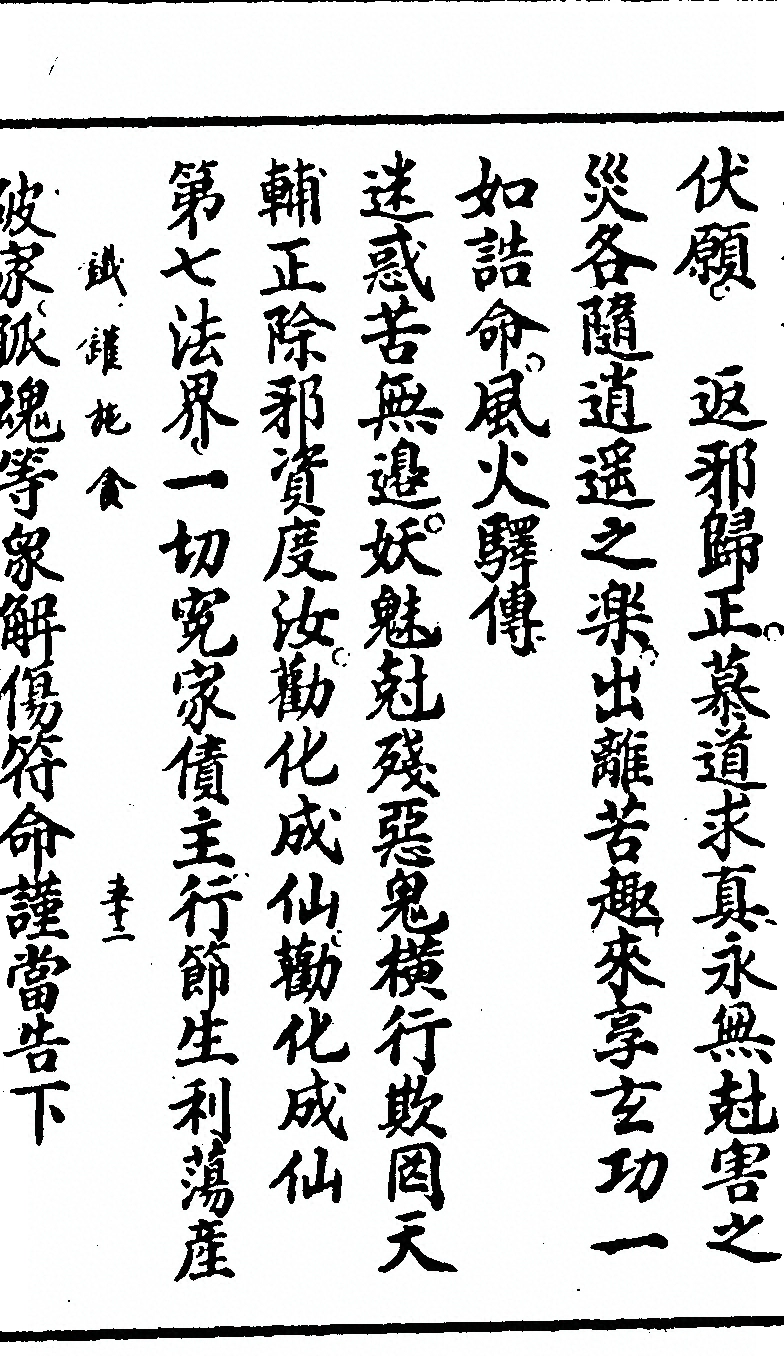 伏願 返邪歸正慕道求真永無尅害之
災各隨逍遥之楽出離苦趣來享玄功一
如誥命風火驛傳
迷惑苦無邉妖魅尅殘惡鬼橫行欺罔天
輔正除邪資度汝勸化成仙勸化成仙
第七法界一切寃家債主行節生利蕩産
鐵鑵施食 五十二
破家孤魂等衆解傷符命謹當告下